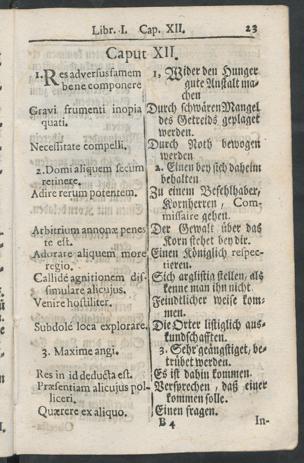 Libr. I. Cap. XII. 23
Caput XII.
1. Res adversus famem
bene componere
Gravi frumenti inopia
quati.
Necessitate compelli,
2. Domi aliquem secum
retinere.
Adire rerum potentem.
Arbitrium annonæ penes
te est.
Adorare aliquem more
regio.
Callidè agnitionem dis-
simulare alicujus.
Venire hostiliter.
Subdolè loca explorare.
3. Maxime angi.
Res in id deducta est.
Præsentiam alicujus pol-
liceri.
Quærere ex aliquo.
1, Wider den Hunger
gute Anstalt ma-
chen
Durch schwären Mangel
des Getreids geplaget
werden.
Durch Noth bewogen
werden
2. Einen bey sich daheim
behalten
Zu einem Befehlhaber,
Kornherren, Com-
missaire gehen.
Der Gewalt über das
Korn stehet bey dir.
Einen Königlich respec-
tieren.
Sich arglistig stellen, als
kenne man ihn nicht.
Feindtlicher weise kom-
men.
Die Orter listiglich aus-
kundschafften.
3. Sehr geängstiget, be-
trübet werden.
Es ist dahin kommen.
Versprechen, daß einer
kommen solle.
Einen fragen.
B 4 In-